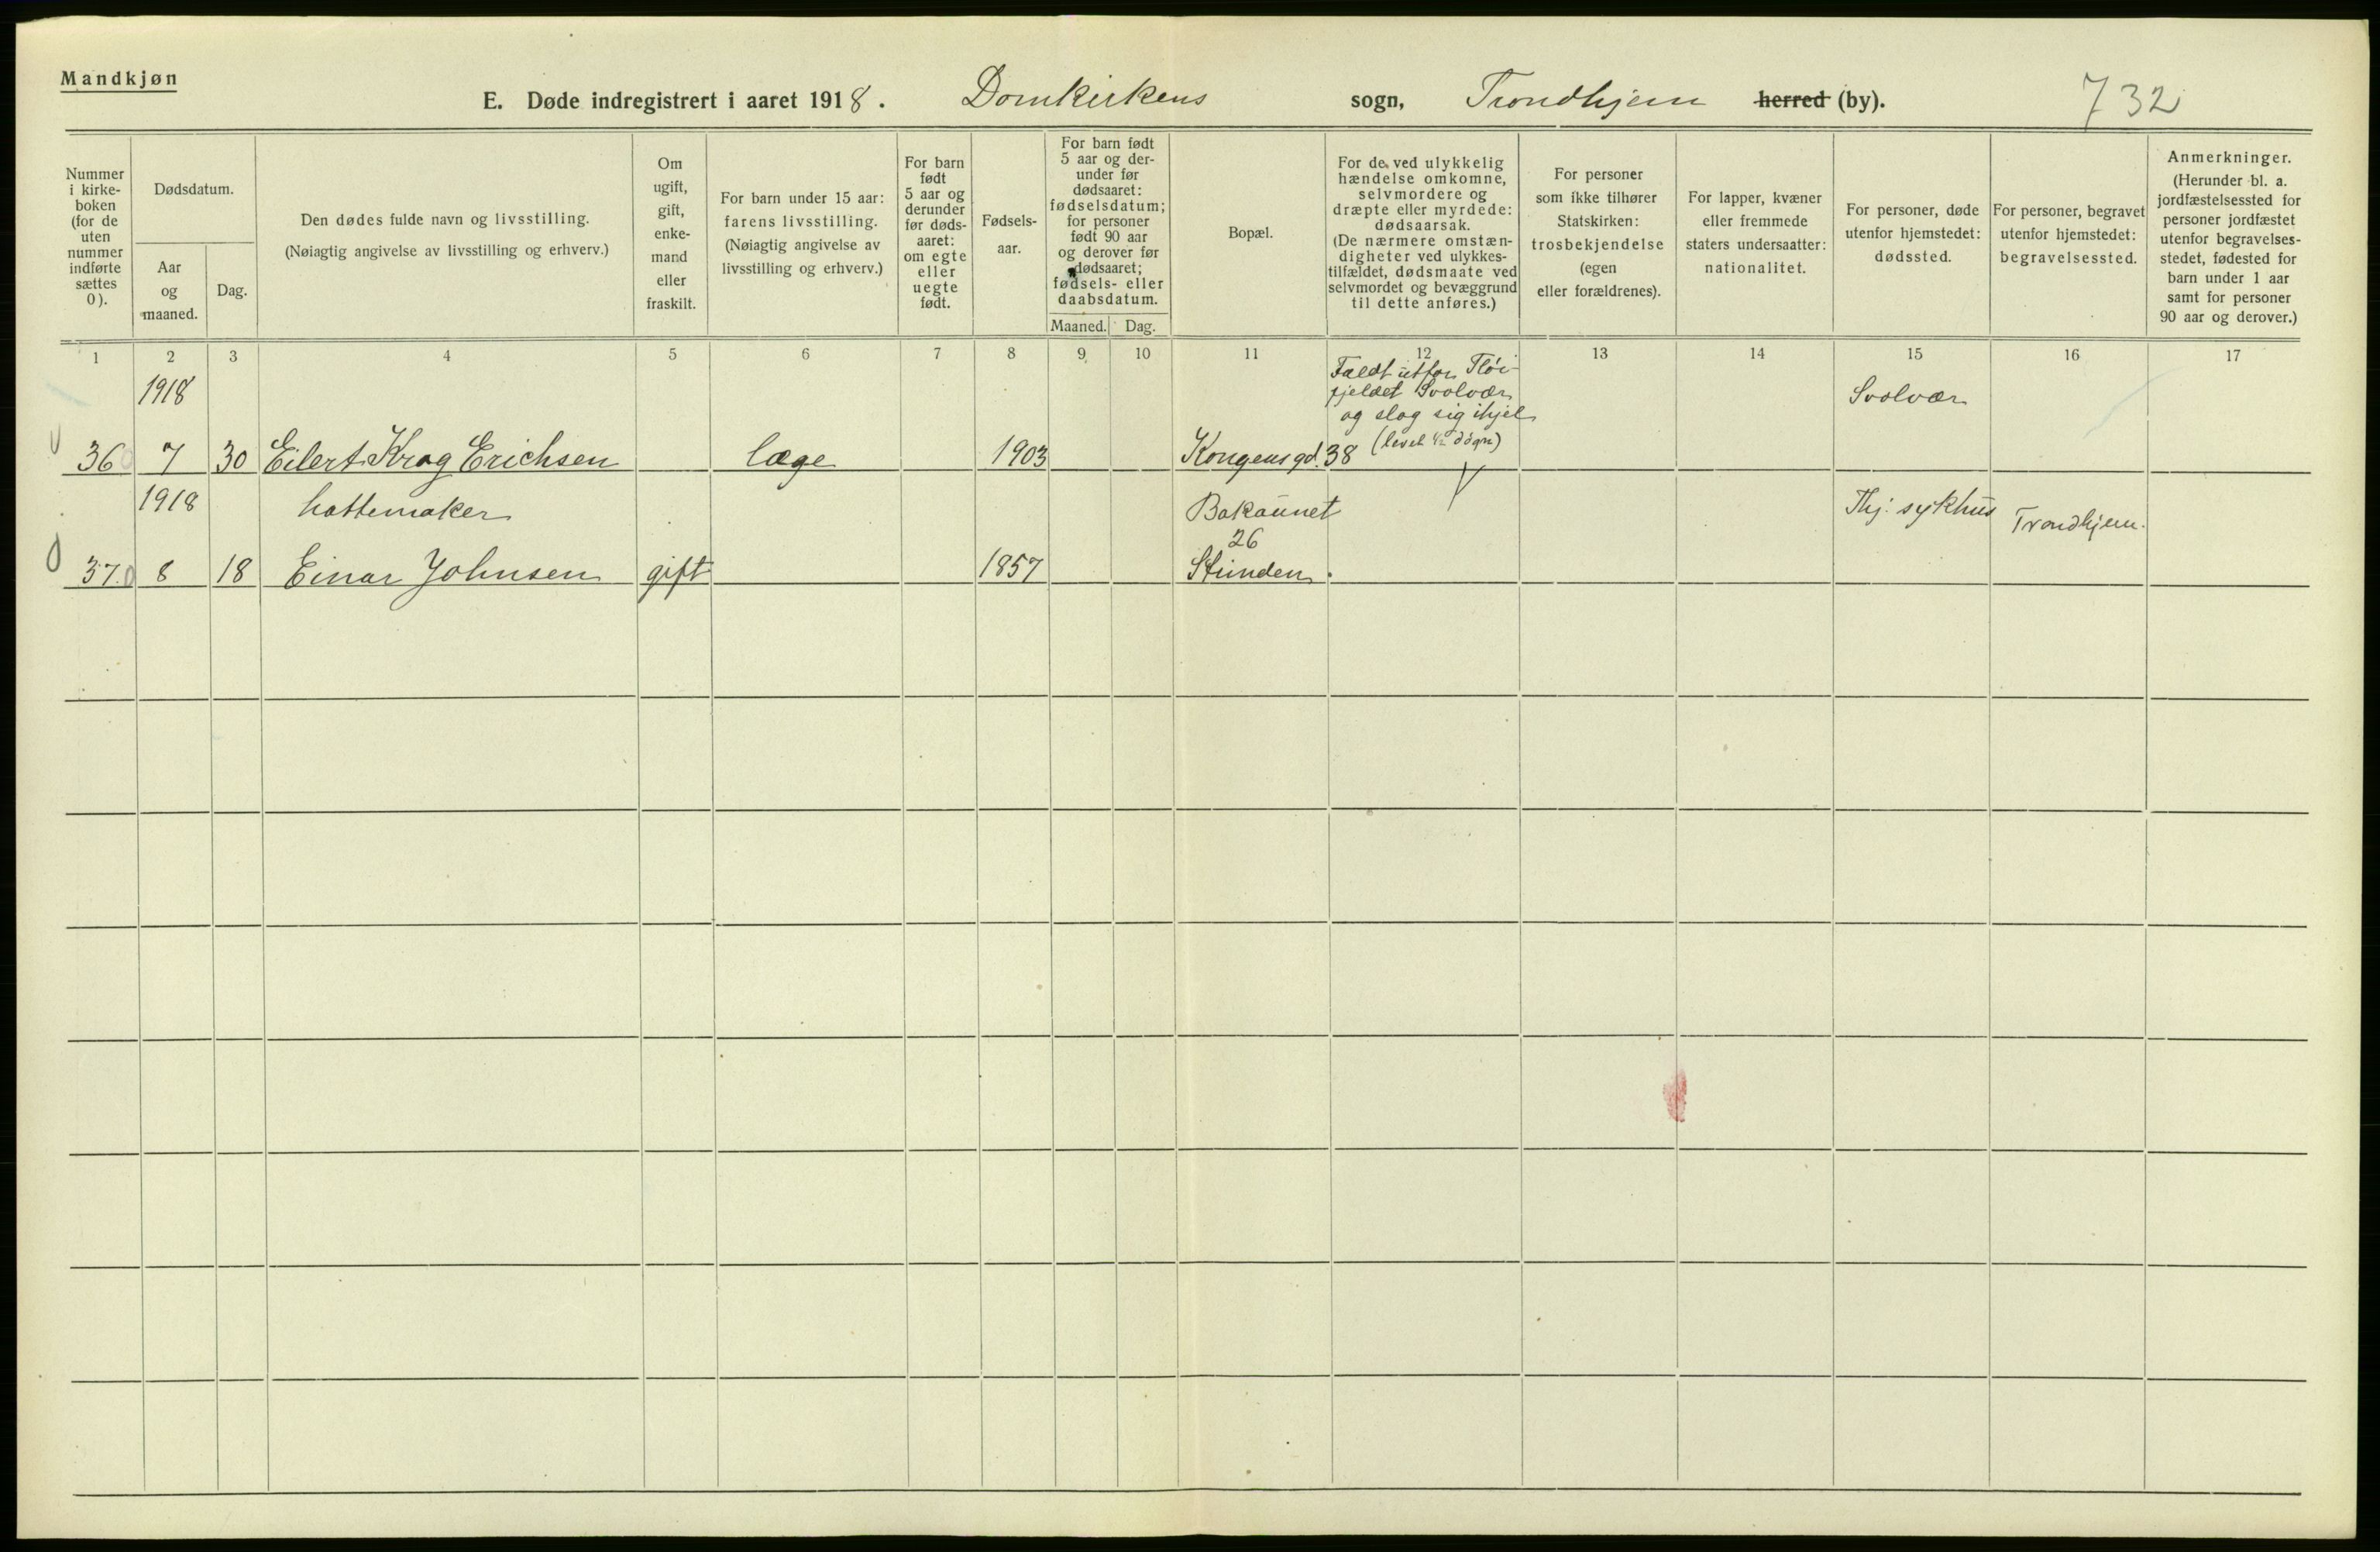 Mandkjøn
E. Døde indregistrert i aaret 1918. Domkirkens sogn, Trondhjem herred (by). 732
Nummer
i kirke-
boken
(for de
uten
nummer
indførte
sættes
0).
Dødsdatum.
Aar
og
maaned.
Dag.
Den dødes fulde navn og livsstilling.
(Nøiagtig angivelse av livsstilling og erhverv.)
Om
ugift,
gift,
enke-
mand
eller
fraskilt.
For barn under 15 aar:
farens livsstilling.
(Nøiagtig angivelse av
livsstilling og erhverv.)
For barn
født
5 aar og
derunder
før døds-
aaret:
om egte
eller
uegte
født.
Fødsels-
aar.
For barn født
5 aar og der-
under før
dødsaaret:
fødselsdatum;
for personer
født 90 aar
og derover før
dødsaaret;
fødsels- eller
daabsdatum.
Maaned. Dag.
Bopæl.
For de ved ulykkelig
hændelse omkomne,
selvmordere og
dræpte eller myrdede:
dødsaarsak.
(De nærmere omstæn-
digheter ved ulykkes-
tilfældet, dødsmaate ved
selvmordet og bevæggrund
til dette anføres.)
For personer
som ikke tilhører
Statskirken:
trosbekjendelse
(egen
eller forældrenes).
For lapper, kvæner
eller fremmede
staters undersaatter:
nationalitet.
For personer, døde
utenfor hjemstedet:
dødssted.
For personer, begravet
utenfor hjemstedet:
begravelsessted.
Anmerkninger.
(Herunder bl. a.
jordfæstelsessted for
personer jordfæstet
utenfor begravelses-
stedet, fødested for
barn under 1 aar
samt for personer
90 aar og derover.)
1 2 3 4 5 6 7 8 9 10 11 12 13 14 15 16 17
1918
Faldt utfor Fløi-
fjeldet Svolvær
og slog sig ihjel
(levet ½ døgn)
Svolvær
36 7 30 Eilert Krog Erichsen læge 1903 Kongensgd. 38
1918 hattemaker Bakaunet Thj. sykhus Trondhjem.
26
37. 8 18 Einar Johnsen gift 1857